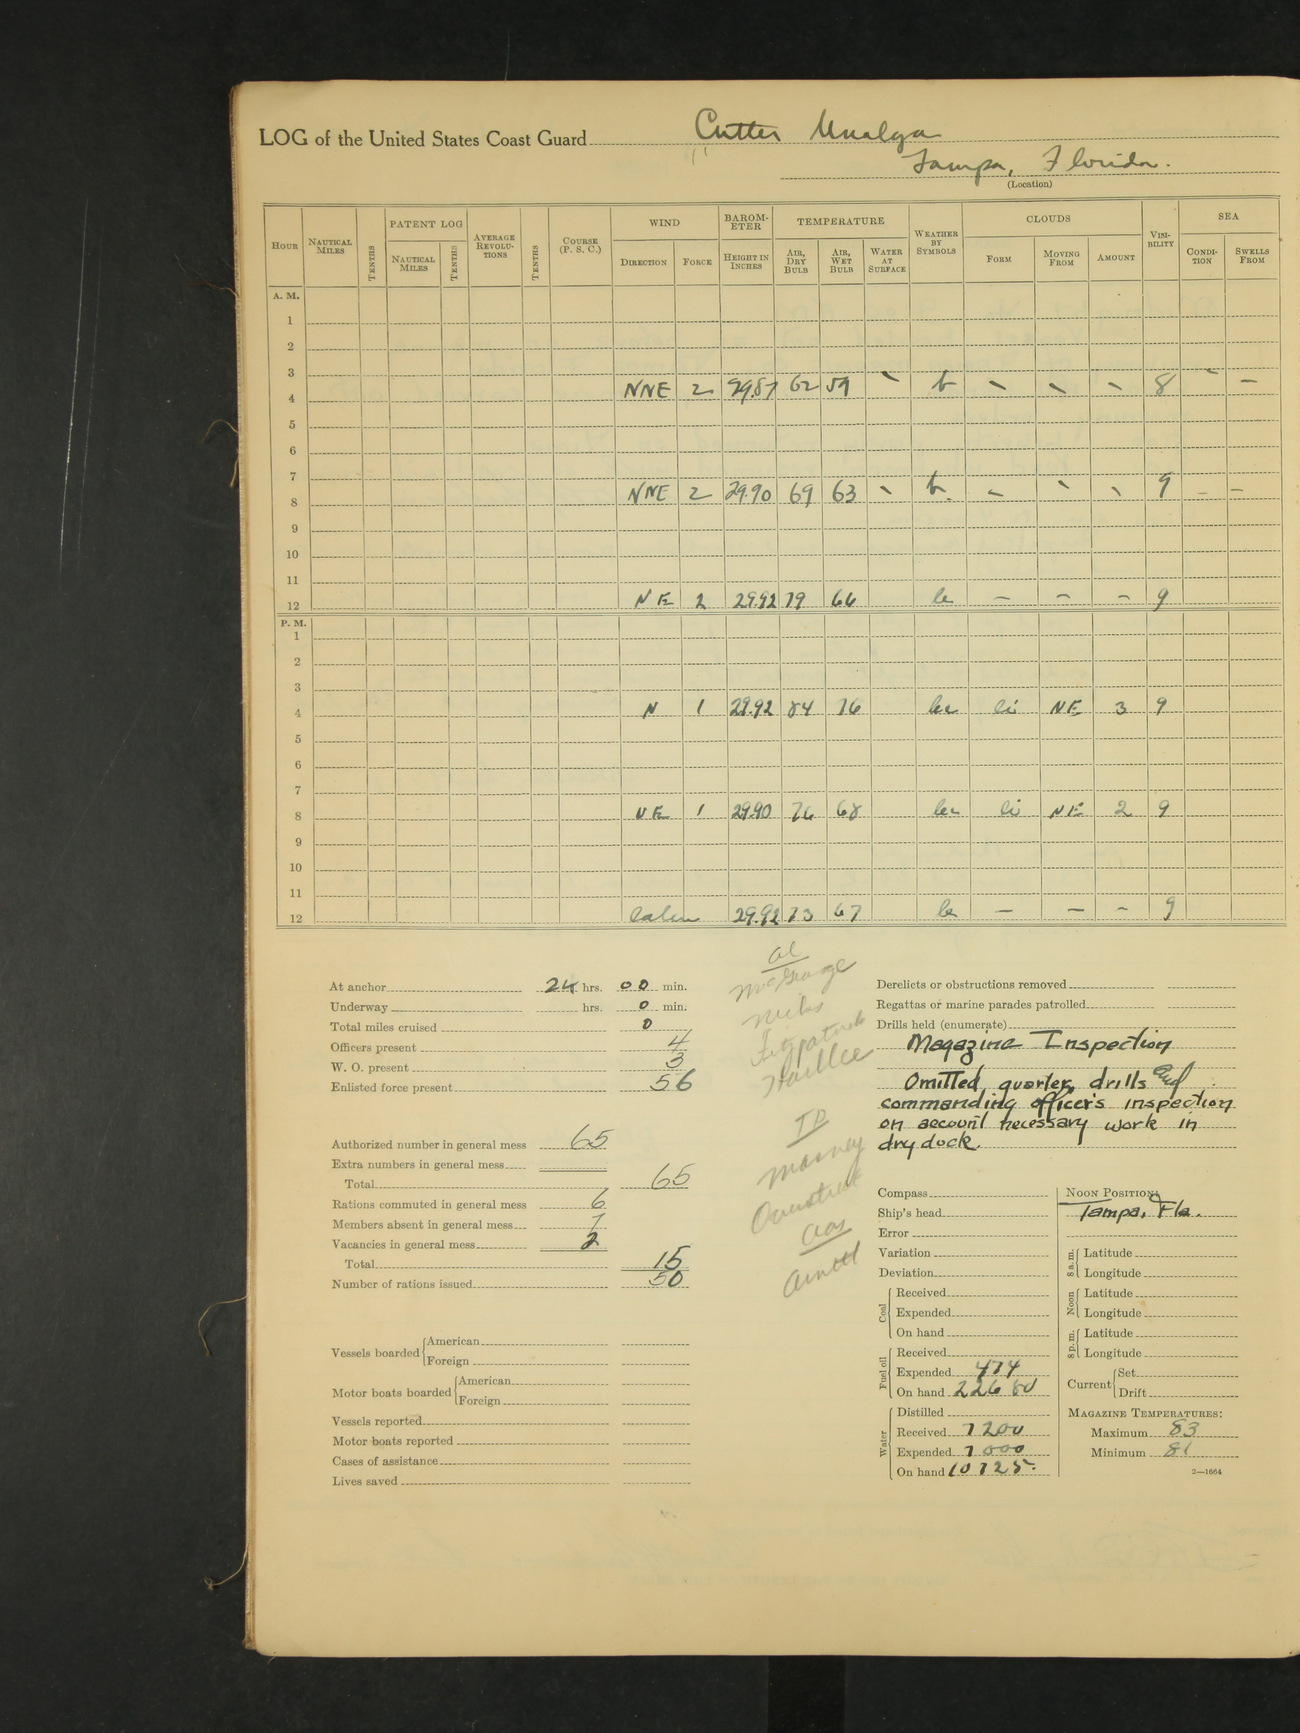 LOG of the United States Coast Guard Cutter Unalga
Tampa, Florida.
(Location)
HOUR NAUTICAL MILES TENTHS PATENT LOG NAUTICAL MILES TENTHS AVERAGE REVOLUTIONS TENTHS COURSE (P. S. C.) WIND DIRECTION FORCE BAROMETER HEIGHT IN INCHES TEMPERATURE AIR, DRY BULB AIR, WET BULB WATER AT SURFACE WEATHER BY SYMBOLS CLOUDS FORM MOVING FROM AMOUNT VISIBILITY SEA CONDITION SWELLS FROM
A. M.
1
2
3
4 NNE 2 29.87 62 59 - b - - - 8 - -
5
6
7
8 NNE 2 29.90 69 63 - b - - - 9 - -
9
10
11
12 NE 2 29.92 79 66 b - - - 9
P. M.
1
2
3
4 N 1 29.92 84 76 bc ci NE 3 9
5
6
7
8 NE 1 29.90 76 68 bc ci NE 2 9
9
10
11
12 Calm 29.92 73 67 b - - - 9
At anchor 24 hrs. 00 min.
Underway hrs. 0 min.
Total miles cruised 0
Officers present 4
W. O. present 3
Enlisted force present 56
Authorized number in general mess 65
Extra numbers in general mess
Total 65
Rations commuted in general mess 6
Members absent in general mess 7
Vacancies in general mess 2
Total 15
Number of rations issued 50
Vessels boarded American
Foreign
Motor boats boarded American
Foreign
Vessels reported
Motor boats reported
Cases of assistance
Lives saved
al
Fitzpatrick
TD
Massey
Overstreet
Arnett
Derelicts or obstructions removed
Regattas or marine parades patrolled
Drills held (enumerate)
Magazine Inspection
Omitted quarters, drills and
commanding officer's inspection
on account necessary work in
dry dock.
Compass
Ship's head
Error
Variation
Deviation
Coal Received
Expended
On hand
Fuel oil Received
Expended 474
On hand 22680
Water Distilled
Received 7200
Expended 7000
On hand 10725
NOON POSITION:
Tampa, Fla.
8 a.m. Latitude
Longitude
Noon Latitude
Longitude
8 p.m. Latitude
Longitude
Current Set
Drift
MAGAZINE TEMPERATURES:
Maximum 83
Minimum 81
2—1664